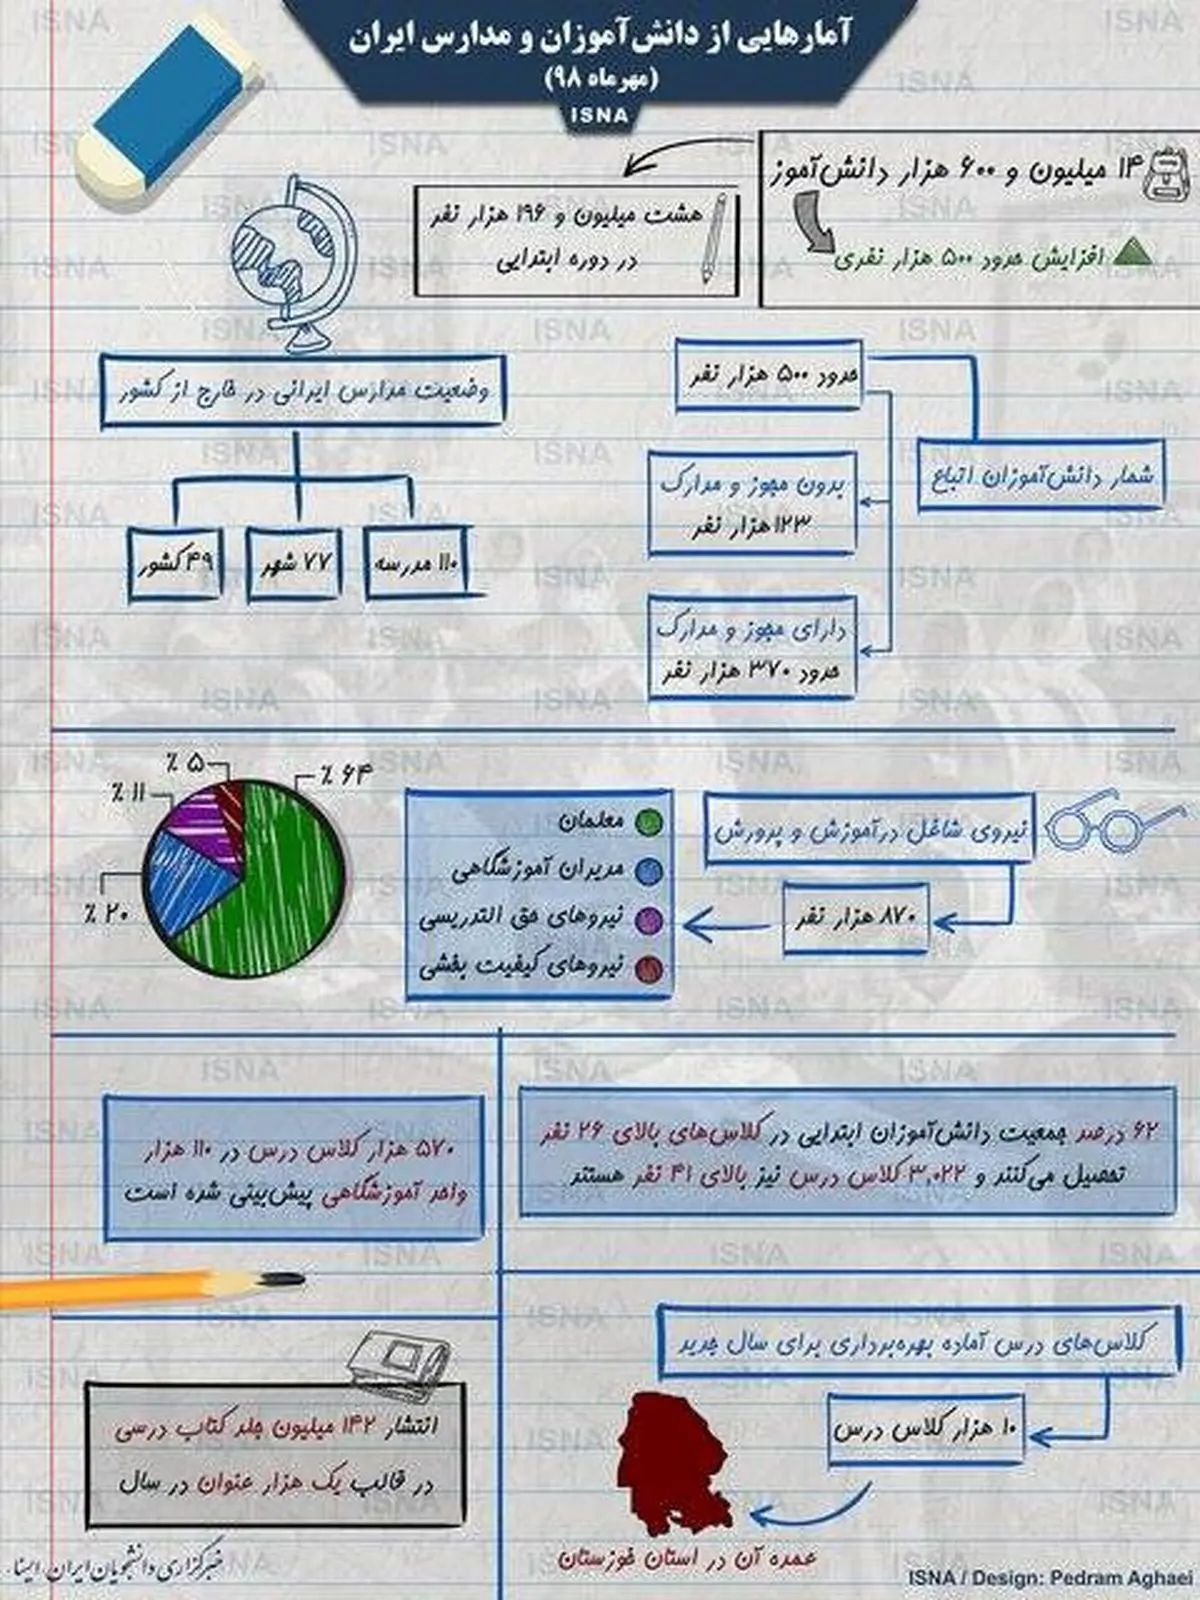 آمارهایی از دانش‌آموزان و مدارس ایران
(مهرماه ۹۸)
ISNA
۱۴ میلیون و ۶۰۰ هزار دانش‌آموز
افزایش حدود ۵۰۰ هزار نفری
هشت میلیون و ۱۹۶ هزار نفر
در دوره ابتدایی
شمار دانش‌آموزان اتباع
حدود ۵۰۰ هزار نفر
بدون مجوز و مدارک
۱۲۳ هزار نفر
دارای مجوز و مدارک
حدود ۳۷۰ هزار نفر
وضعیت مدارس ایرانی در خارج از کشور
۱۱۰ مدرسه
۷۷ شهر
۴۹ کشور
نیروی شاغل در آموزش و پرورش
۸۷۰ هزار نفر
معلمان
مدیران آموزشگاهی
نیروهای حق التدریسی
نیروهای کیفیت بخشی
٪ ۶۴
٪ ۵
٪ ۱۱
٪ ۲۰
۶۲ درصد جمعیت دانش‌آموزان ابتدایی در کلاس‌های بالای ۲۶ نفر
تحصیل می‌کنند و ۳,۰۲۲ کلاس درس نیز بالای ۴۱ نفر هستند
۵۷۰ هزار کلاس درس در ۱۱۰ هزار
واحد آموزشگاهی پیش‌بینی شده است
کلاس‌های درس آماده بهره‌برداری برای سال جدید
۱۰ هزار کلاس درس
عمده آن در استان خوزستان
انتشار ۱۴۲ میلیون جلد کتاب درسی
در قالب یک هزار عنوان در سال
خبرگزاری دانشجویان ایران، ایسنا
ISNA / Design: Pedram Aghaei